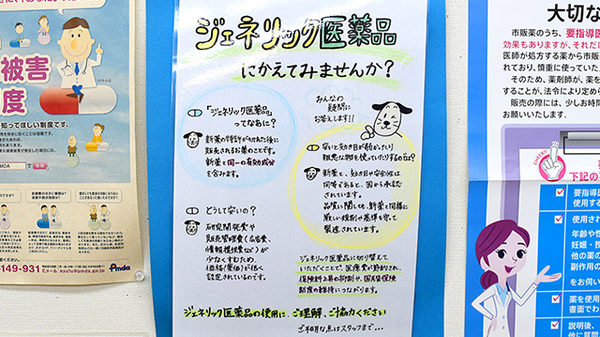 被害
度
知ってほしい制度です。
149-931
Eメール kyufu@pmda.go.jp
Pmda
ジェネリック医薬品
にかえてみませんか?
「ジェネリック医薬品」
ってなあに?
新薬の特許がきれた後に
販売されるお薬のことです。
新薬と同一の有効成分
を含みます。
どうして安いの?
研究開発費や
販売管理費(広告費、
情報提供費など)が
少なくすむため、
価格(薬価)が低く
設定されているのです。
みんなの
疑問に
お答えします!!
安いと効き目が弱かったり
粗悪な物を使っていたりするのでは?
新薬と、効き目や安全性は
同等であると、国から承認
されています。
品質に関しても、新薬と同様に
厳しい規制や基準を守って
製造されています。
ジェネリック医薬品に切り替えて
いただくことで、医療費が節約され、
保険料上昇の抑制や、国民皆保険
制度の維持につながります。
ジェネリック医薬品の使用に、ご理解、ご協力ください
ご不明な点はスタッフまで…
大切な
市販薬のうち、要指導医
効果もありますが、それだけ
医師が処方する薬から市販
れており、慎重に使っていた
そのため、薬剤師が、薬を
することが、法令により定めら
販売の際には、少しお時間
お願いいたします。
CHECK!
下記の
要指導医
使用する
使用され
年齢や
妊娠・授
他の薬の
副作用の
をお伺い
薬を使用
書面でわ
説明後、
他に質問